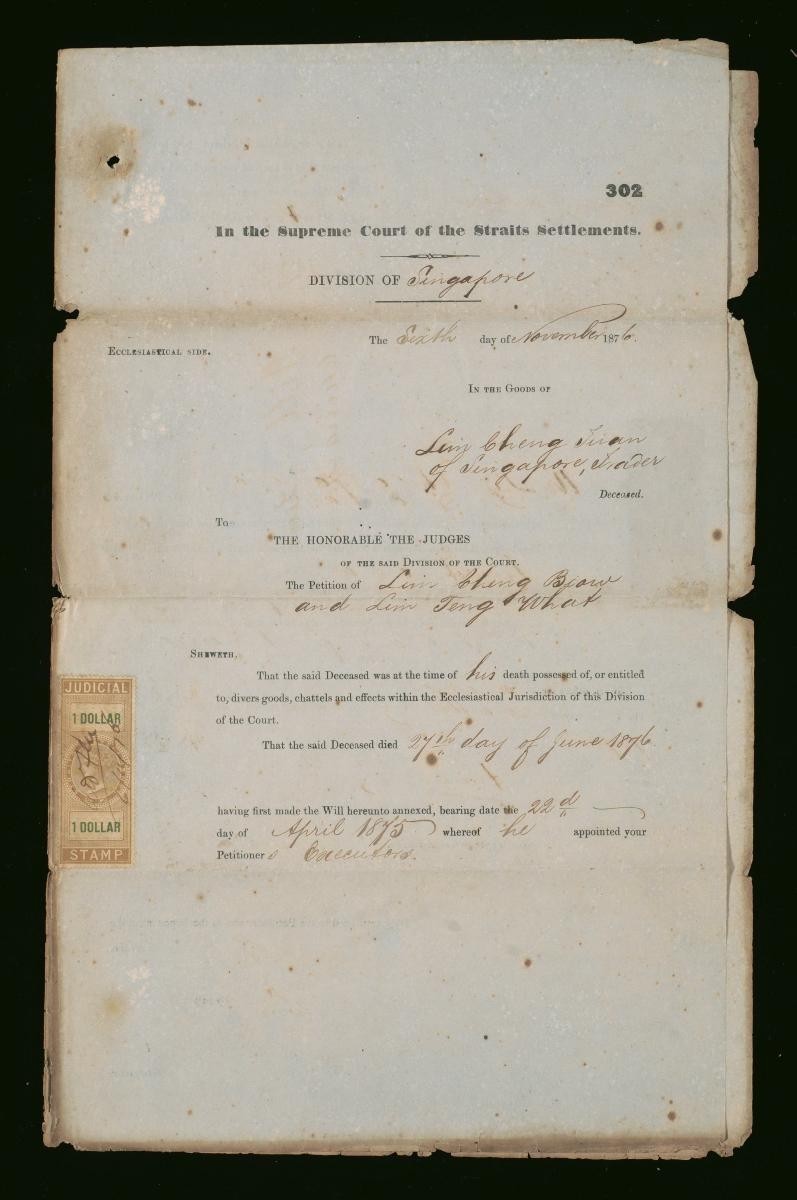 302
In the Supreme Court of the Straits Settlements.
DIVISION OF Singapore
The Sixth day of November 1876.
ECCLESIASTICAL SIDE.
IN THE GOODS OF
Lim Cheng
of Singapore, Trader
Deceased.
To
THE HONORABLE THE JUDGES
OF THE SAID DIVISION OF THE COURT.
The Petition of Lim Cheng Beow
and Lim Teng What
SHEWETH.
That the said Deceased was at the time of his death possessed of, or entitled
to, divers goods, chattels and effects within the Ecclesiastical Jurisdiction of this Division
of the Court.
That the said Deceased died 27th day of June 1876
having first made the Will hereunto annexed, bearing date the 22d
day of April 1875 whereof he appointed your
Petitioners Executors.
JUDICIAL
1 DOLLAR
1 DOLLAR
STAMP